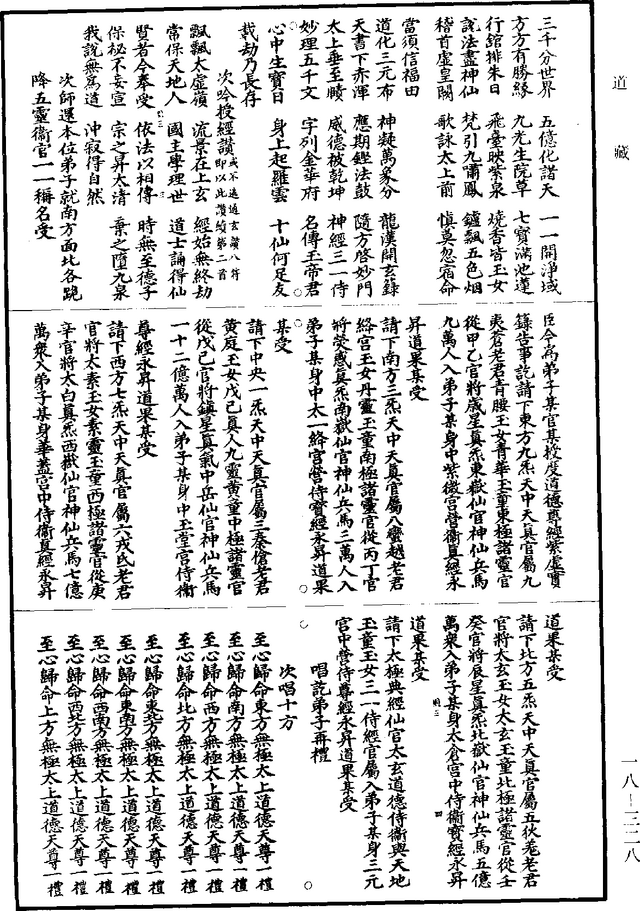 道藏
三千分世界　五億化諸天　一一開淨域
方方有勝緣　九光生院草　七寶滿池蓮
行舘排朱日　飛臺映紫泉　燒香皆玉女
說法盡神仙　梵引九嘯鳳　鑪飄五色烟
稽首虛皇闕　歌詠太上前　慎莫忽宿命
當須信福田
道化三元布　神凝萬衆分　龍漢開玄籙
天書下赤渾　應期鏗法鼓　隨方啓妙門
太上垂至賾　威德被乾坤　神經三一侍
妙理五千文　字列金華府　名傳玉帝君
心中生寶日　身上起羅雲　十仙何足友
載劫乃長存
次吟授經讚或不過道玄讚八符即以此讚續第二首
飄飄太虛嶺　流景在上玄　經始無終劫
常保天地人　國主學理世　道士誦得仙
賢者令奉受　依法以相傳　時無至德子
保祕不妄宣　宗之昇太清　棄之墮九泉
我說無爲道　沖寂得自然
次師還本位弟子就南方面北各跪
降五靈衞官一一稱名受
臣今爲弟子某官某校度道德尊經紫虛寶
籙告事訖請下東方九炁天中天真官屬九
夷蒼老君青腰玉女青華玉童東極諸靈官
從甲乙官將歲星真炁東嶽仙官神仙兵馬
九萬人入弟子某身中紫微宮營衞真經永
昇道果某受
請下南方三炁天中天真官屬八蠻越老君
絡宮玉女丹靈玉童南極諸靈官從丙丁官
將熒惑真炁南嶽仙官神仙兵馬三萬人入
弟子某身中太一絡宮營侍寶經永昇道果
某受
請下中央一炁天中天真官屬三秦傖老君
黃庭玉女戊己真人九靈黃童中極諸靈官
從戊己官將鎮星真氣中岳仙官神仙兵馬
一十二億萬人入弟子某身中玉堂宮侍衞
尊經永昇道果某受
請下西方七炁天中天真官屬六戎氐老君
官將太素玉女素靈玉童西極諸靈官從庚
辛官將太白真炁西嶽仙官神仙兵馬七億
萬衆入弟子某身華蓋宮中侍衞真經永昇
道果某受
請下北方五炁天中天真官屬五狄羗老君
官將太玄玉女太玄玉童北極諸靈官從壬
癸官將辰星真炁北嶽仙官神仙兵馬五億
萬衆入弟子某身太倉宮中侍衞寶經永昇
道果某受
請下太極典經仙官太玄道德侍衞與天地
玉童玉女三一侍經官屬入弟子某身三元
宮中營侍尊經永昇道果某受
唱訖弟子再禮
次唱十方
至心歸命東方無極太上道德天尊一禮
至心歸命南方無極太上道德天尊一禮
至心歸命西方無極太上道德天尊一禮
至心歸命北方無極太上道德天尊一禮
至心歸命東北方無極太上道德天尊一禮
至心歸命東南方無極太上道德天尊一禮
至心歸命西南方無極太上道德天尊一禮
至心歸命西北方無極太上道德天尊一禮
至心歸命上方無極太上道德天尊一禮
一八-三二八